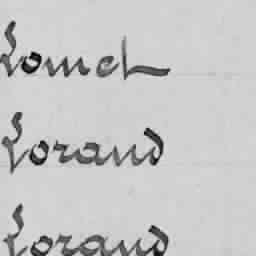 Lomet
Lorand
Lorand